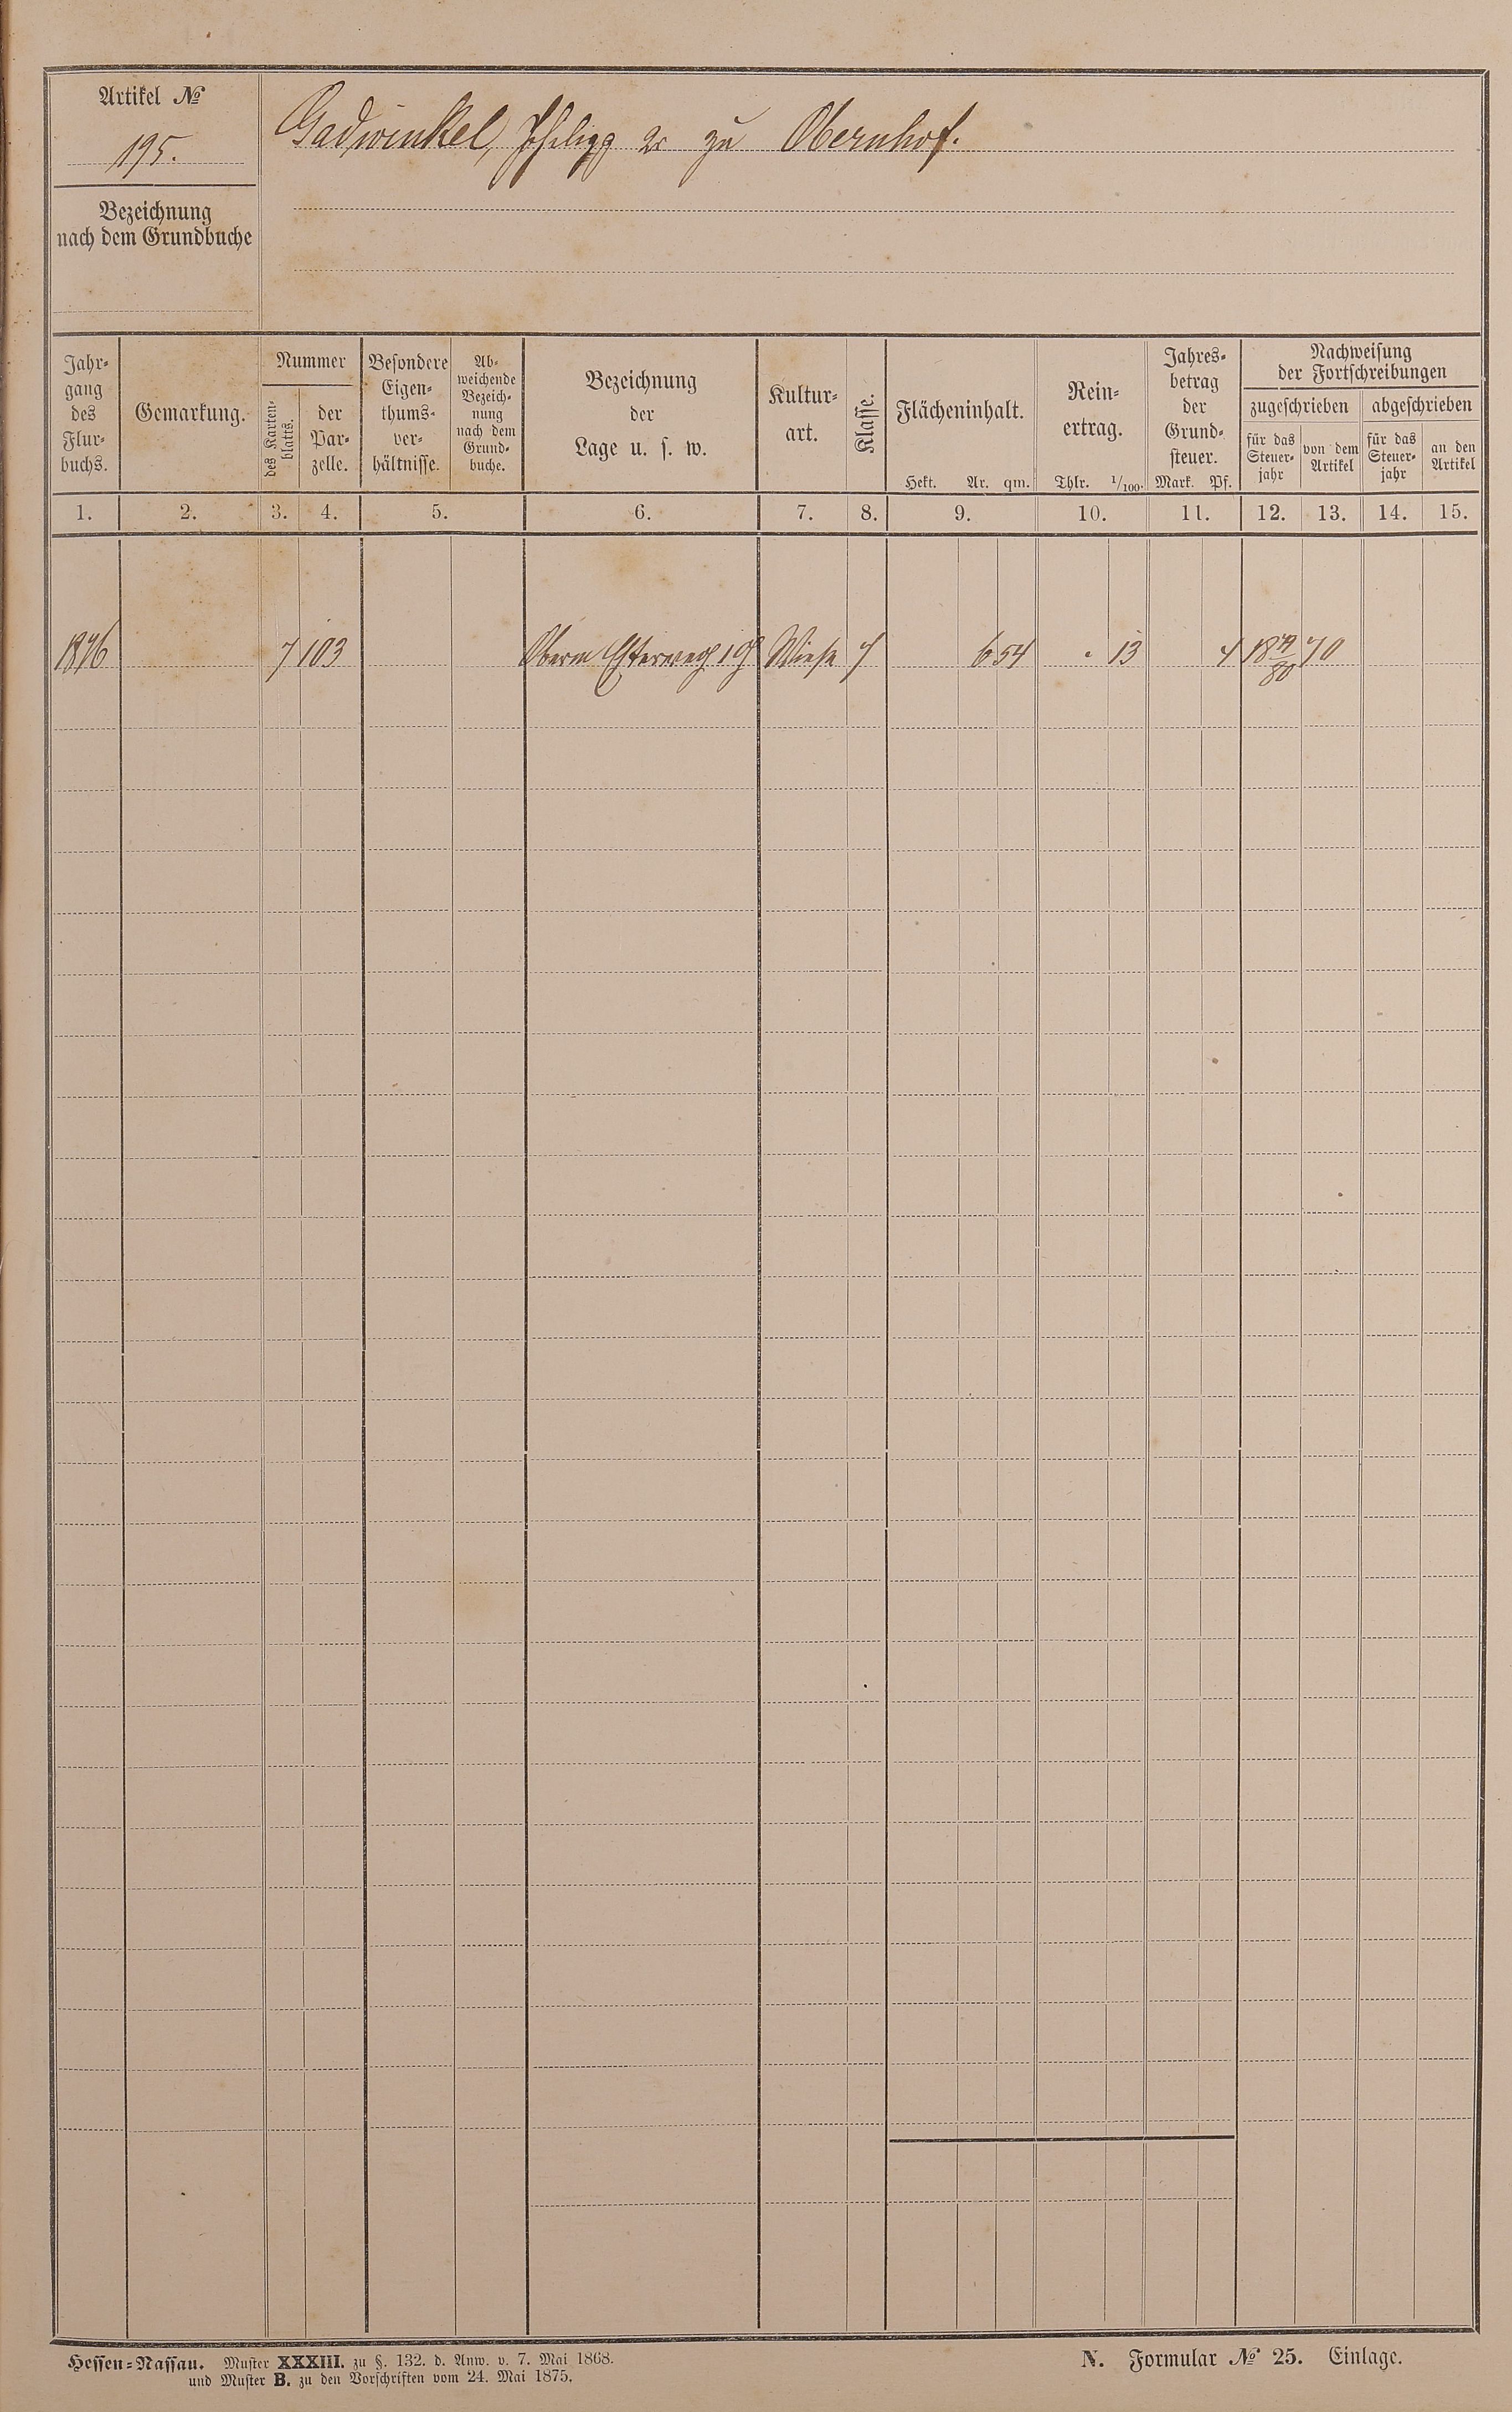 Artikel №
195.
Gadwinkel, Philipp 2r zu Obernhof.
Bezeichnung
nach dem Grundbuche
Jahr-
gang
des
Flur-
buchs.
Gemarkung.
Nummer
des Karten-
blatts.
der
Par-
zelle.
Besondere
Eigen-
thums-
ver-
hältnisse.
Ab-
weichende
Bezeich-
nung
nach dem
Grund-
buche.
Bezeichnung
der
Lage u. s. w.
Kultur-
art.
Klasse.
Flächeninhalt.
Hekt. Ar. qm.
Rein-
ertrag.
Thlr. 1/100.
Jahres-
betrag
der
Grund-
steuer.
Mark. Pf.
Nachweisung
der Fortschreibungen
zugeschrieben
abgeschrieben
für das
Steuer-
jahr
von dem
Artikel
für das
Steuer-
jahr
an den
Artikel
1. 2. 3. 4. 5. 6. 7. 8. 9. 10. 11. 12. 13. 14. 15.
1876 7 103 Wiese 7 6 54 " 13 4 1879/80 70
Hessen-Nassau. Muster XXXIII. zu §. 132. d. Anw. v. 7. Mai 1868.
und Muster B. zu den Vorschriften vom 24. Mai 1875.
N. Formular № 25. Einlage.